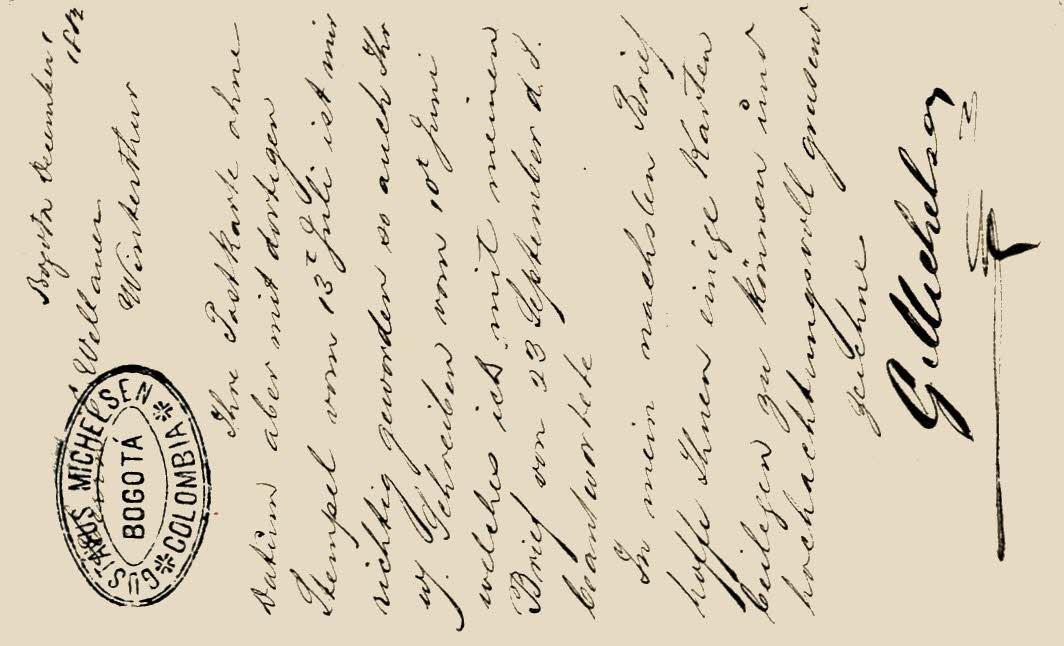 Bogota December 1
1882
GUSTAVUS MICHELSEN
BOGOTÁ
COLOMBIA
Wellauer
Winterthur
Ihre Postkarte ohne
Datum aber mit dortigen
Stempel vom 13t Juli ist mir
richtig geworden so auch Ihr
w. Schreiben vom 10t Juni
welches ich mit meinen
Brief von 23 September d. J.
beantwortete
In mein nachsten Brief
hoffe Ihnen einige Karten
beilegen zu können und
hochachtungsvoll grusend
zeichne
G. Michelsen